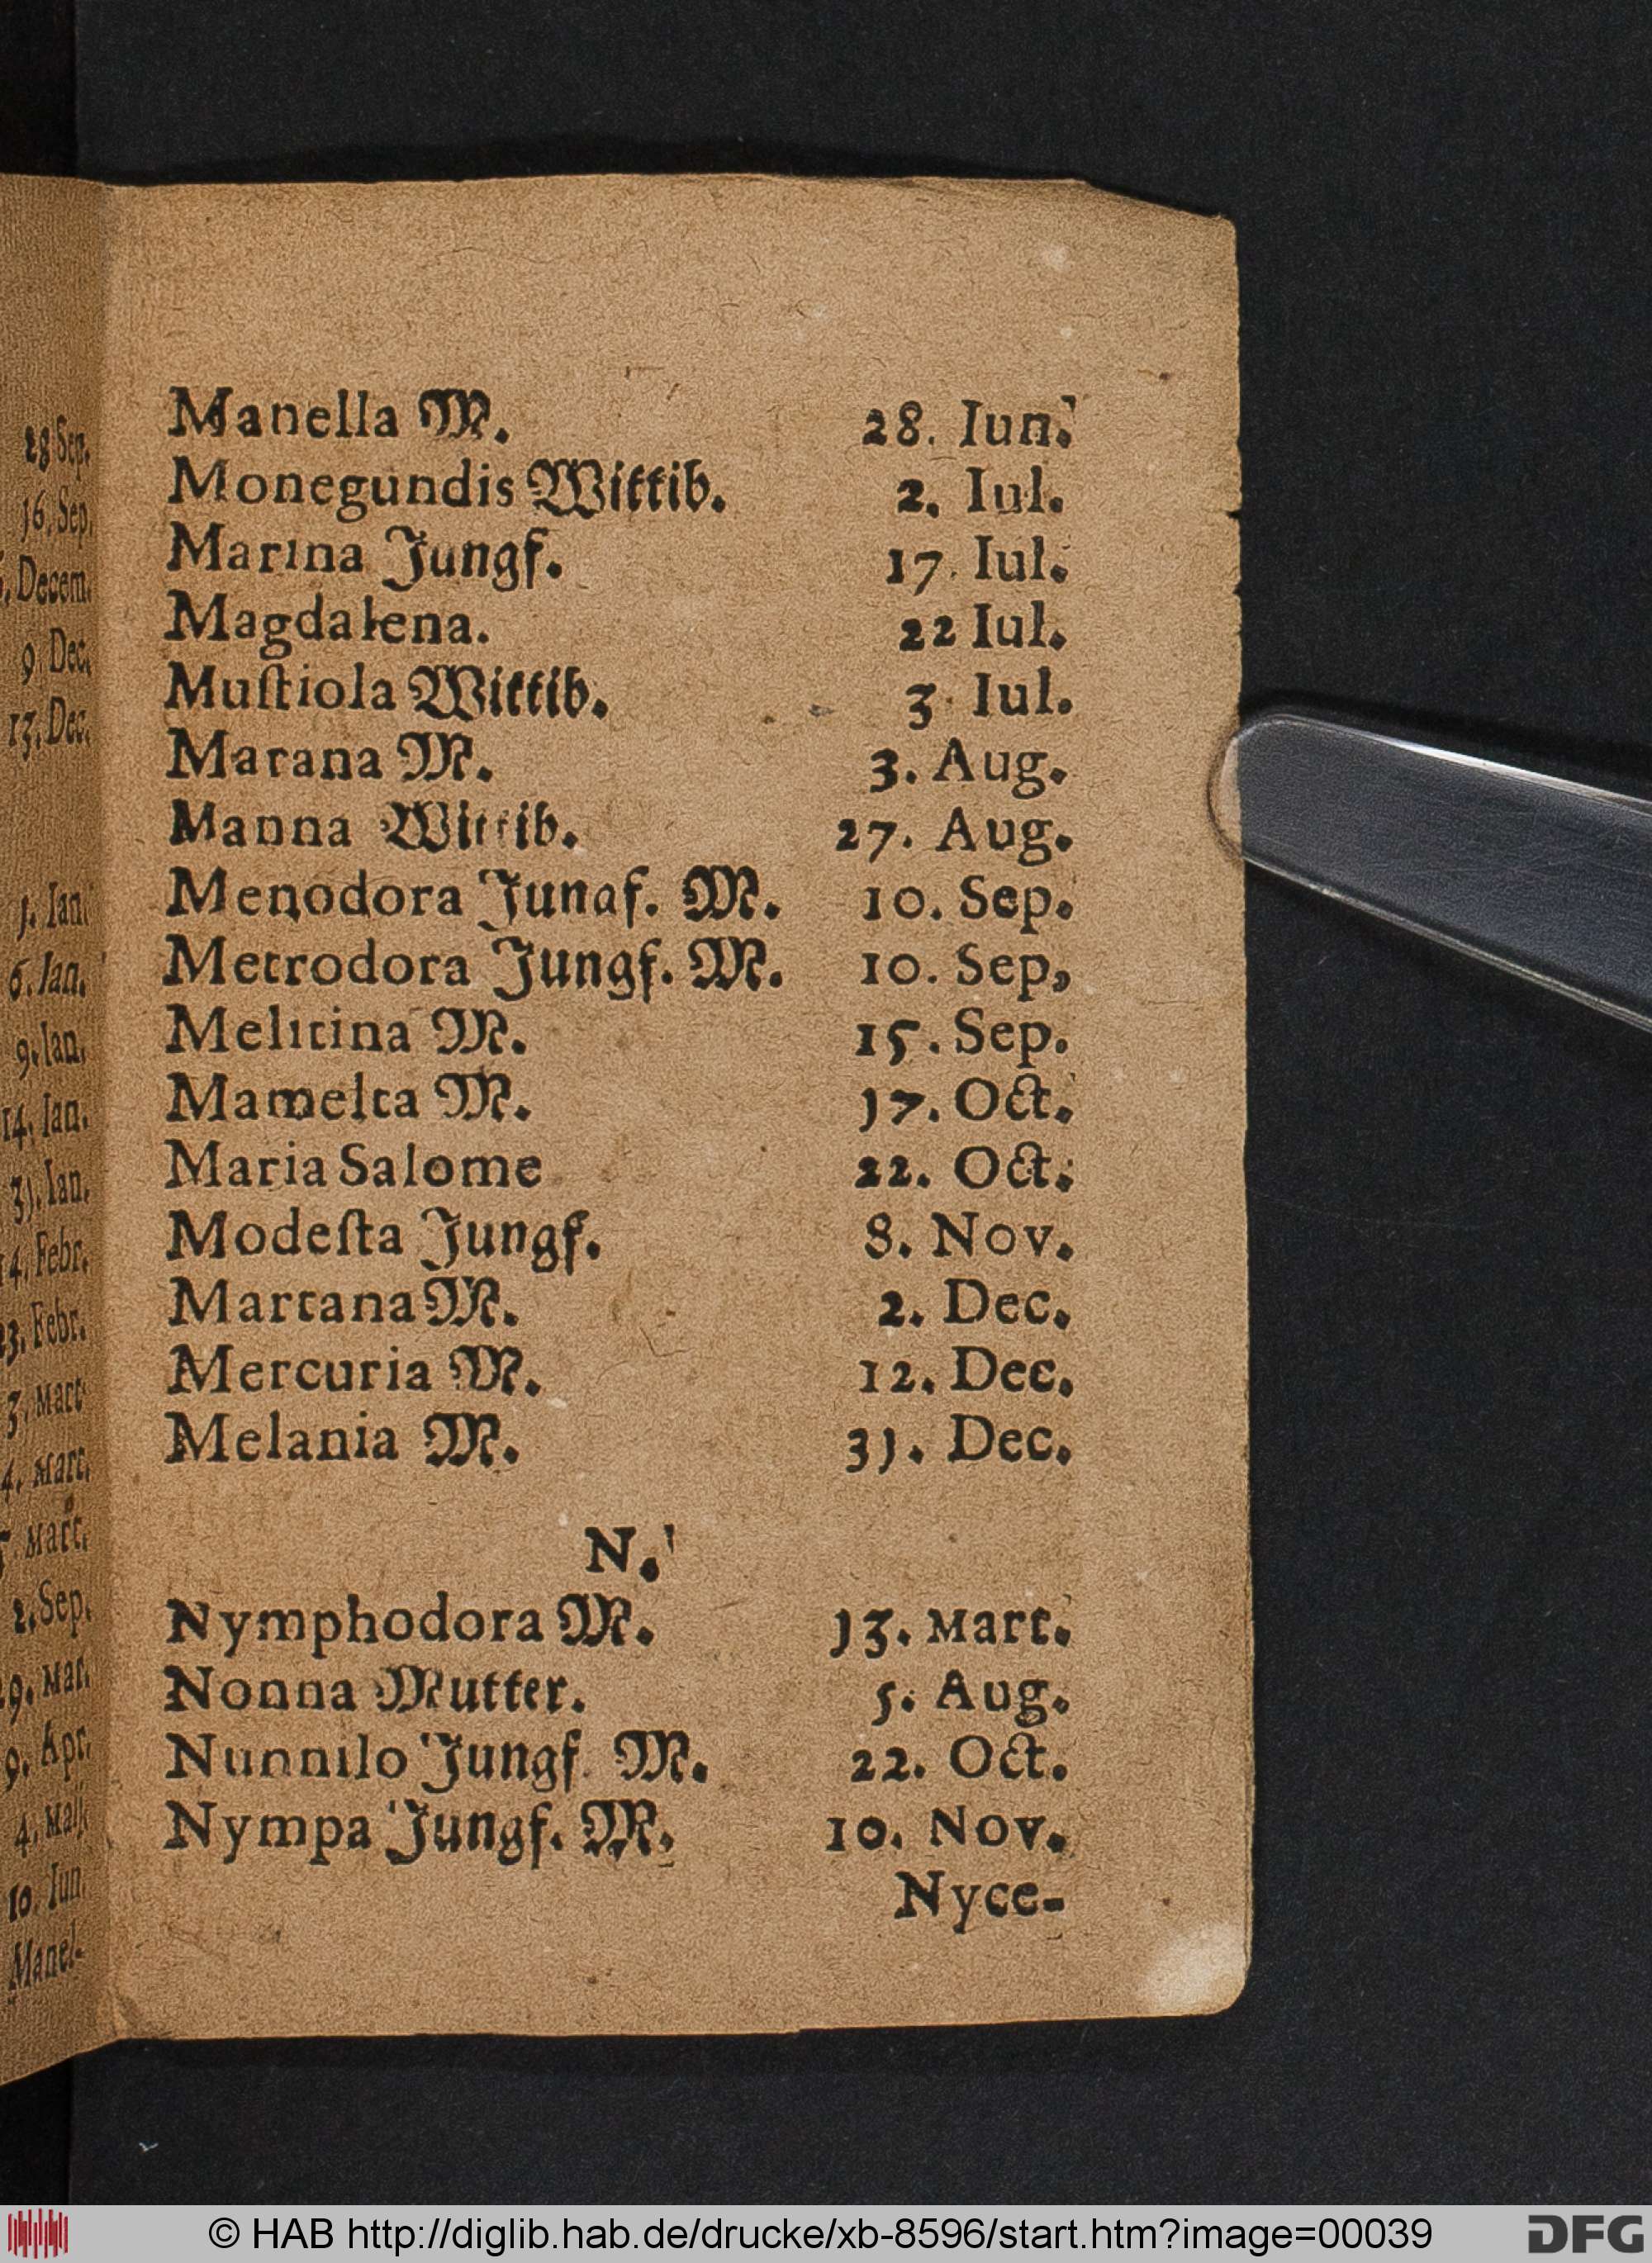 28 Sep.
16. Sep.
Decem.
9. Dec.
13. Dec.
1. Ian.
6. Ian.
9. Ian.
14. Ian.
31. Ian.
14. Febr.
23. Febr.
3. Mart
4. Mart.
Mart.
2. Sep.
9. Mar.
9. Apr.
4. Maij
10. Iun.
Manel-
Manella M. 28. Iun.
Monegundis Wittib. 2. Iul.
Marina Jungf. 17. Iul.
Magdalena. 22 Iul.
Muſtiola Wittib. 3. Iul.
Marana M. 3. Aug.
Manna Wittib. 27. Aug.
Menodora Jungf. M. 10. Sep.
Metrodora Jungf. M. 10. Sep,
Melitina M. 15. Sep.
Mamelta M. 17. Oct.
Maria Salome 22. Oct.
Modeſta Jungf. 8. Nov.
Martana M. 2. Dec.
Mercuria M. 12. Dec.
Melania M. 31. Dec.
N.
Nymphodora M. 13. Mart.
Nonna Mutter. 5. Aug.
Nunnilo Jungf. M. 22. Oct.
Nympa Jungf. M. 10. Nov.
Nyce-
© HAB http://diglib.hab.de/drucke/xb-8596/start.htm?image=00039
DFG